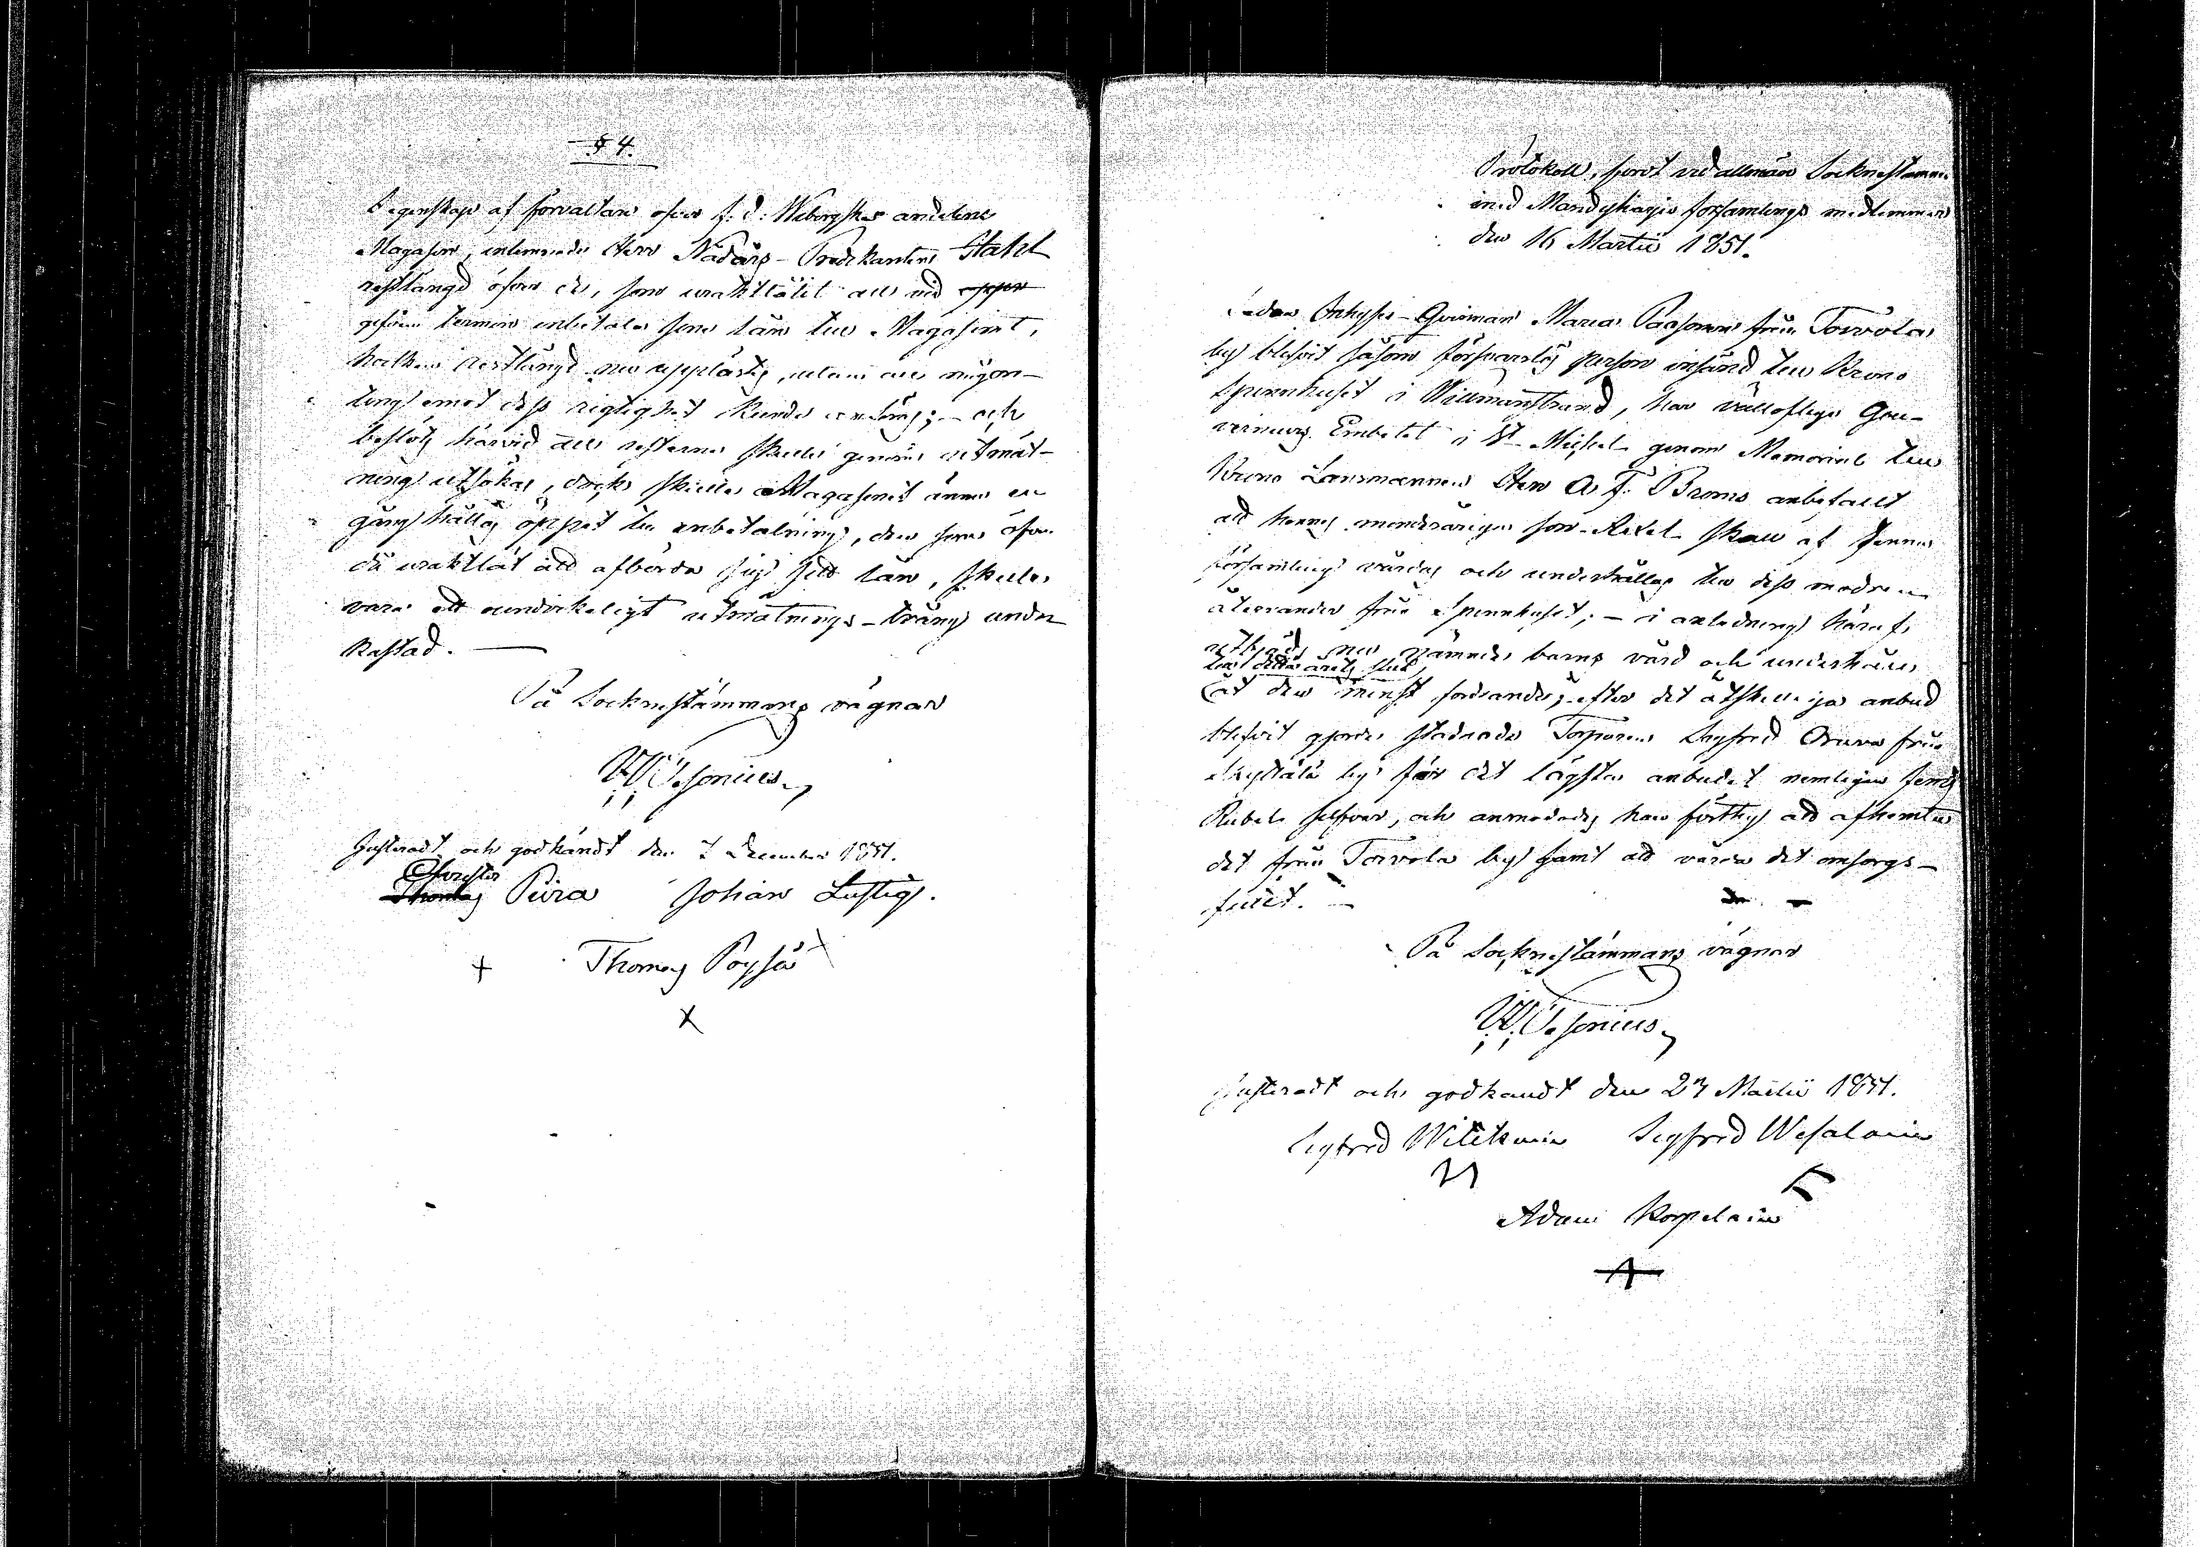 § 4.
I egenskap af förvaltare öfver f. d. Wiborgska andelens
Magasin, inlemnade Herr Nådårs-Predikanten Stahl
restlängd öfver de, som uraktlåtit att vid uppen
gifven termin inbetala sine lån till Magasinet,
hvilken restlängd nu upplästes, utan att någon-
ting emot dess rigtighet kunde andragas; - och
beslöts härvid att resterna skulle genom utmät-
ning utsökas, dock skulle Magasinet ännu en
gång hållas öppet till inbetalning, den som öfver
då uraktlåt att afbörda sig sitt lån, skulle
vara ett oundvikeligt utmätnings-tvång under
kastad. —
På Socknestämmans vägnar
W Cesonius
Justeradt och godkändt den 7 December 1851.
Christer
Thomas Piira Johan Lustig.
+ Thomas Pöysä
X
Protokoll, fördt vid allmän Socknestämma
med Mändyharju församlings medlemmar
den 16 Martii 1851.
Sedan Inhyses-Qvinnan Maria Paasonen från Toivola
by blifvit såsom försvarslös person insänd till Krono
Spinnhuset i Willmanstrand, har vällofliga Gou-
verneurs Embetet i St Michel genom Memorial till
Krono Länsmannen Herr A. F. Bromo anbefallt
att hennes minderåriga son Axel skall af denna
församling vårdas och underhållas till dess modrens
återvändo från Spinnhuset; - i anledning häraf
utbjöds nu nämnde barns vård och underhåll
till detta årets slut
åt den minst fordrande; efter det åtskilliga anbud
blifvit gjorde stadnade Torparen Sigfred Orava från
by för det lägsta anbudet nemligen
Rubel silfver, och anmodades han förthy att afhemta
det från Toivola by samt att vårda det omsorgs-
fullt. —
På Socknestämmans vägnar
W Cesonius
Justeradt och godkändt den 23 Martii 1851.
Sigfred Witikain Sigfred Wesalain
Adam Korpelain